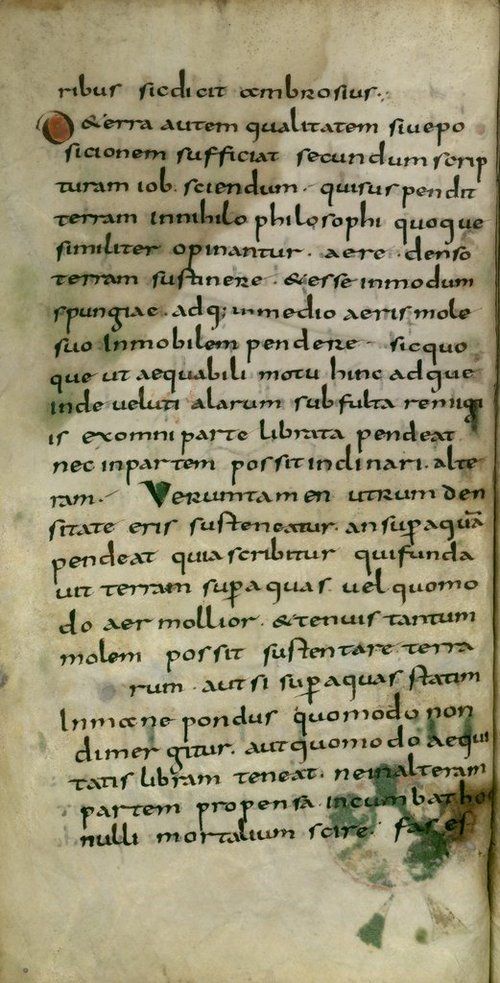 ribus sicdicit ambrosius.
De terra autem qualitatem siuepo
sicionem sufficiat secundum scrip
turam iob. sciendum. quisuspendit
terram innihilo philosophi quoque
similiter opinantur. aere denso
terram sustinere. &esse inmodum
spungiae. adq; inmedio aeris mole
suo Inmobilem pendere sicquo
que ut aequabili motu hinc adque
inde ueluti alarum subfulta remigi
is exomni parte librata pendeat
nec inpartem possit inclinari. alte
ram. Veruntamen utrum den
sitate eris susteneatur. an sup aquã
pendeat quia scribitur qui funda
uit terram sup aquas. uel quomo
do aer mollior. &tenuis tantum
molem possit sustentare terra
rum. aut si sup aquas statim
Inmane pondus quomodo non
dimergitur. aut quomodo aequi
tatis libram teneat. ne inalteram
partem propensa incumbat hoc
nulli mortalium scire. fas est